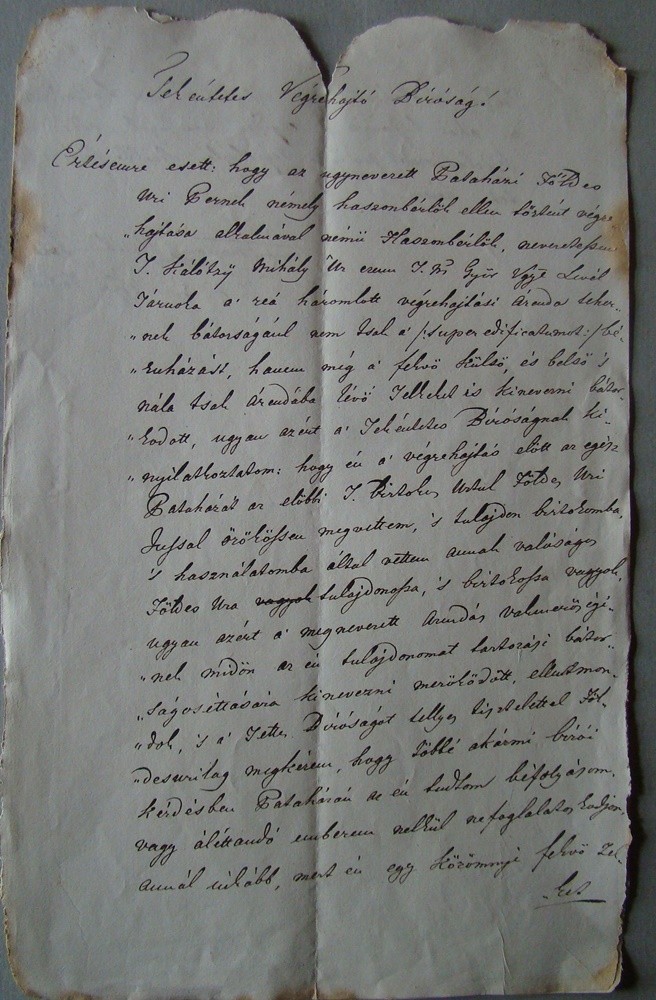 Tekéntetes Végrehajtó Biróság!
Értésemre esett: hogy az ugynevezett Pataházi Földes
Uri Pernek némely haszonbérlők ellen történt végre
„hajtása alkalmával némü Haszonbérlők, nevezetessen
T. Kálózÿ Mihály Úr ezen T. Ns Győr Vgye Levél
Tárnoka a' reá háromlott végrehajtási Árenda teher„
„nek bátorságáúl nem tsak a' /:superedificatumot:/ bé„
„ruházást, hanem még a' fekvö külsö, és belsö 's
nála tsak árendába lévö Telkeket is kinevezni bátor„
„kodott, ugyan azért a' Tekéntetes Biróságnak ki„
„nyilatkoztatom: hogy én a' végrehajtás elött az egész
Pataházát az elöbbi T. birtokos Urtul Földes Uri
Jussal örökössen megvettem, 's tulajdon birtokomba,
's használatomba által vettem annak valóságos
Földes Ura vagyok tulajdonossa, 's birtokossa vagyok,
ugyan azért a' megnevezett Árendás vakmerőségé„
„nek midön az én tulajdonomat tartozási bátor„
„ságosittására kinevezni merészködött, ellentmon„
„dok, 's a' Tettes Biróságot tellyes tisztelettel Föl„
„desurilag megkérem, hogy többé akármi birói
kérdésben Pataházán az én tudtom béfolyásom,
vagy álittandó emberem nélkül nefoglalatoskodjon,
annál inkább, mert én egy közönnyi fekvö Tel„
„ket